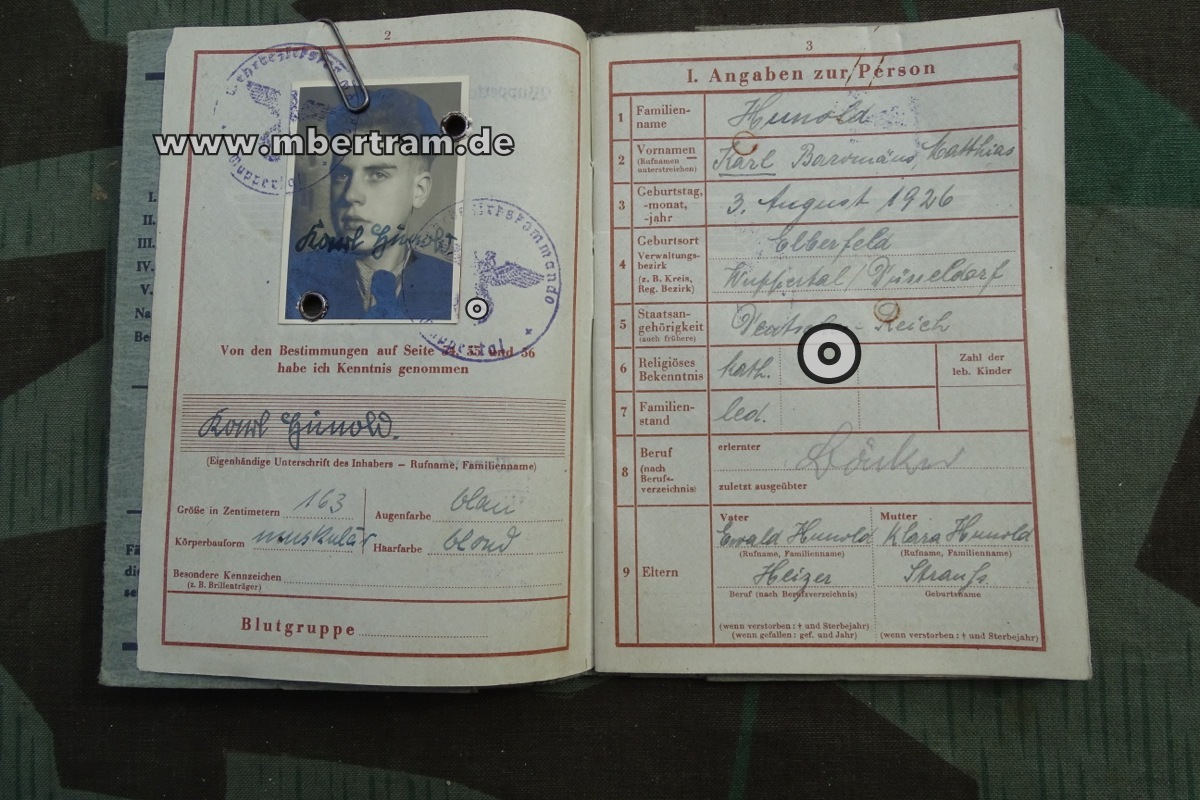 2
www.mbertram.de
Wuppertal
Karl Hunold
Von den Bestimmungen auf Seite 54, 55 und 56
habe ich Kenntnis genommen
Karl Hunold.
(Eigenhändige Unterschrift des Inhabers – Rufname, Familienname)
Größe in Zentimetern 163 Augenfarbe blau
Körperbauform muskulär Haarfarbe blond
Besondere Kennzeichen
(z. B. Brillenträger)
Blutgruppe
I.
II.
III.
IV.
V.
3
I. Angaben zur Person
1 Familien-
name
Hunold
2 Vornamen
(Rufnamen
unterstreichen)
Karl Baromäus Matthias
3 Geburtstag,
-monat,
-jahr
3. August 1926
4 Geburtsort
Verwaltungs-
bezirk
(z. B. Kreis,
Reg. Bezirk)
Elberfeld
Wuppertal/Düsseldorf
5 Staatsan-
gehörigkeit
(auch frühere)
Reich
6 Religiöses
Bekenntnis
kath.
Zahl der
leb. Kinder
7 Familien-
stand
led.
8 Beruf
(nach
Berufs-
verzeichnis)
erlernter
zuletzt ausgeübter
9 Eltern
Vater
Ewald Hunold
(Rufname, Familienname)
Heizer
Beruf (nach Berufsverzeichnis)
(wenn verstorben: † und Sterbejahr)
(wenn gefallen: gef. und Jahr)
Mutter
Klara Hunold
(Rufname, Familienname)
Strauß
Geburtsname
(wenn verstorben: † und Sterbejahr)